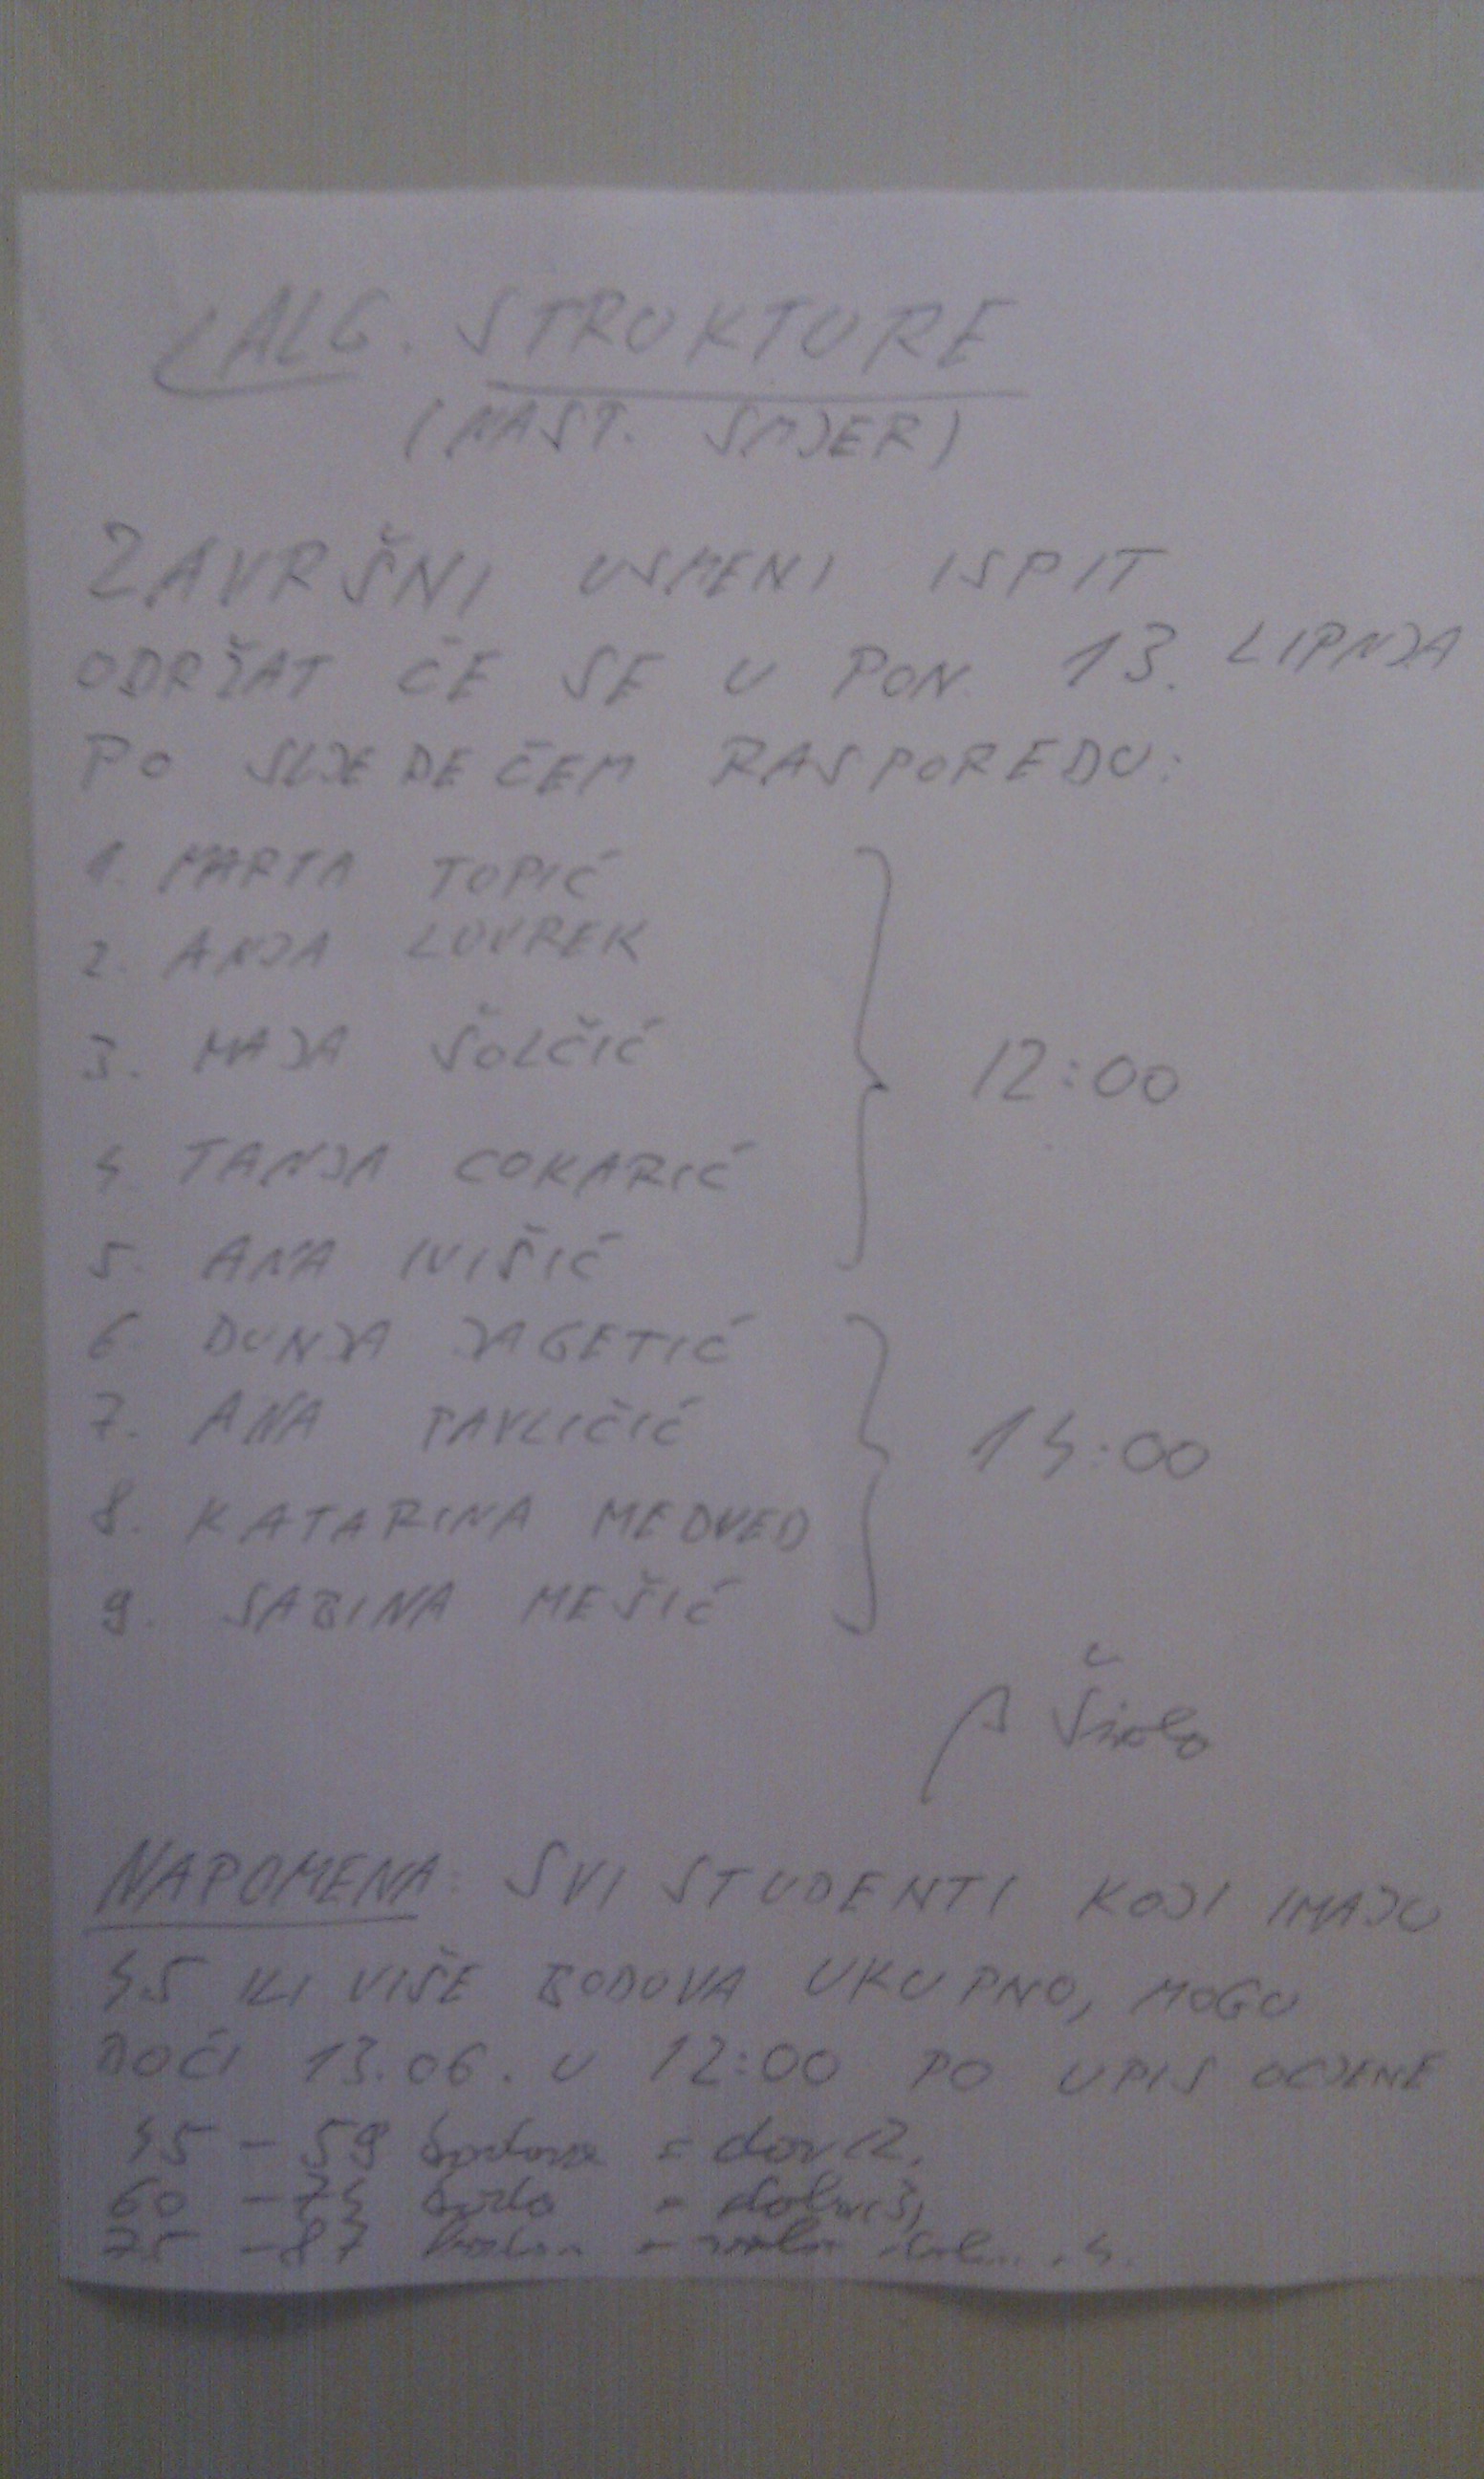 ALG. STRUKTURE
(NAST. SMJER)
ZAVRŠNI USMENI ISPIT
ODRŽAT ĆE SE U PON. 13. LIPNJA
PO SLJEDEĆEM RASPOREDU:
1. MARTA TOPIĆ
2. ANJA LOVREK
3. MAJA ŠOLČIĆ
4. TANJA COKARIĆ
5. ANA IVIŠIĆ
12:00
6. DUNJA JAGETIĆ
7. ANA PAVLIČIĆ
8. KATARINA MEDVED
9. SABINA MEŠIĆ
14:00
NAPOMENA: SVI STUDENTI KOJI IMAJU
45 ILI VIŠE BODOVA UKUPNO, MOGU
DOĆI 13.06. U 12:00 PO UPIS OCJENE
45 - 59 bodova =
60 - 74 boda =
75 - 87